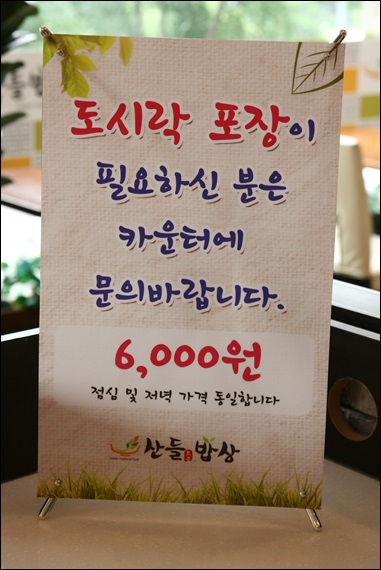 도시락 포장이
필요하신 분은
카운터에
문의바랍니다.
6,000원
점심 및 저녁 가격 동일합니다
산들밥상